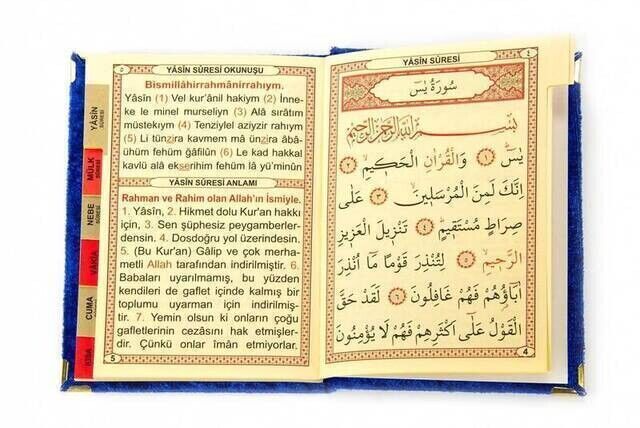 YÂSİN SÛRESİ
٤
سُورَةُ يٰسٓ
بِسْمِ اللّٰهِ الرَّحْمٰنِ الرَّحِيمِ
يٰسٓ ﴿١﴾ وَالْقُرْاٰنِ الْحَكِيمِ ﴿٢﴾
اِنَّكَ لَمِنَ الْمُرْسَلِينَ ﴿٣﴾ عَلٰى
صِرَاطٍ مُسْتَقِيمٍ ﴿٤﴾ تَنْزِيلَ الْعَزِيزِ
الرَّحِيمِ ﴿٥﴾ لِتُنْذِرَ قَوْمًا مَٓا اُنْذِرَ
اٰبَٓاؤُ۬هُمْ فَهُمْ غَافِلُونَ ﴿٦﴾ لَقَدْ حَقَّ
الْقَوْلُ عَلٰٓى اَكْثَرِهِمْ فَهُمْ لَا يُؤْمِنُونَ
4
٥
YÂSİN SÛRESİ OKUNUŞU
Bismillâhirrahmânirrahıym.
Yâsîn (1) Vel kur'ânil hakiym (2) İnne-
ke le minel murseliyn (3) Alâ sırâtım
müstekıym (4) Tenziylel aziyzir rahıym
(5) Li tünzira kavmem mâ ünzira âbâ-
ühüm fehüm ğâfilûn (6) Le kad hakkal
kavlü alâ ekserihim fehüm lâ yü'minûn
YÂSİN SÛRESİ ANLAMI
Rahman ve Rahim olan Allah'ın İsmiyle.
1. Yâsîn, 2. Hikmet dolu Kur'an hakkı
için, 3. Sen şüphesiz peygamberler-
densin. 4. Dosdoğru yol üzerindesin.
5. (Bu Kur'an) Gâlip ve çok merha-
metli Allah tarafından indirilmiştir. 6.
Babaları uyarılmamış, bu yüzden
kendileri de gaflet içinde kalmış bir
toplumu uyarman için indirilmiş-
tir. 7. Yemin olsun ki onların çoğu
gafletlerinin cezasını hak etmişler-
dir. Çünkü onlar îmân etmiyorlar.
5
YÂSİN
SÛRESİ
MÜLK
SÛRESİ
NEBE
SÛRESİ
VÂKIA
CUMA
KISA